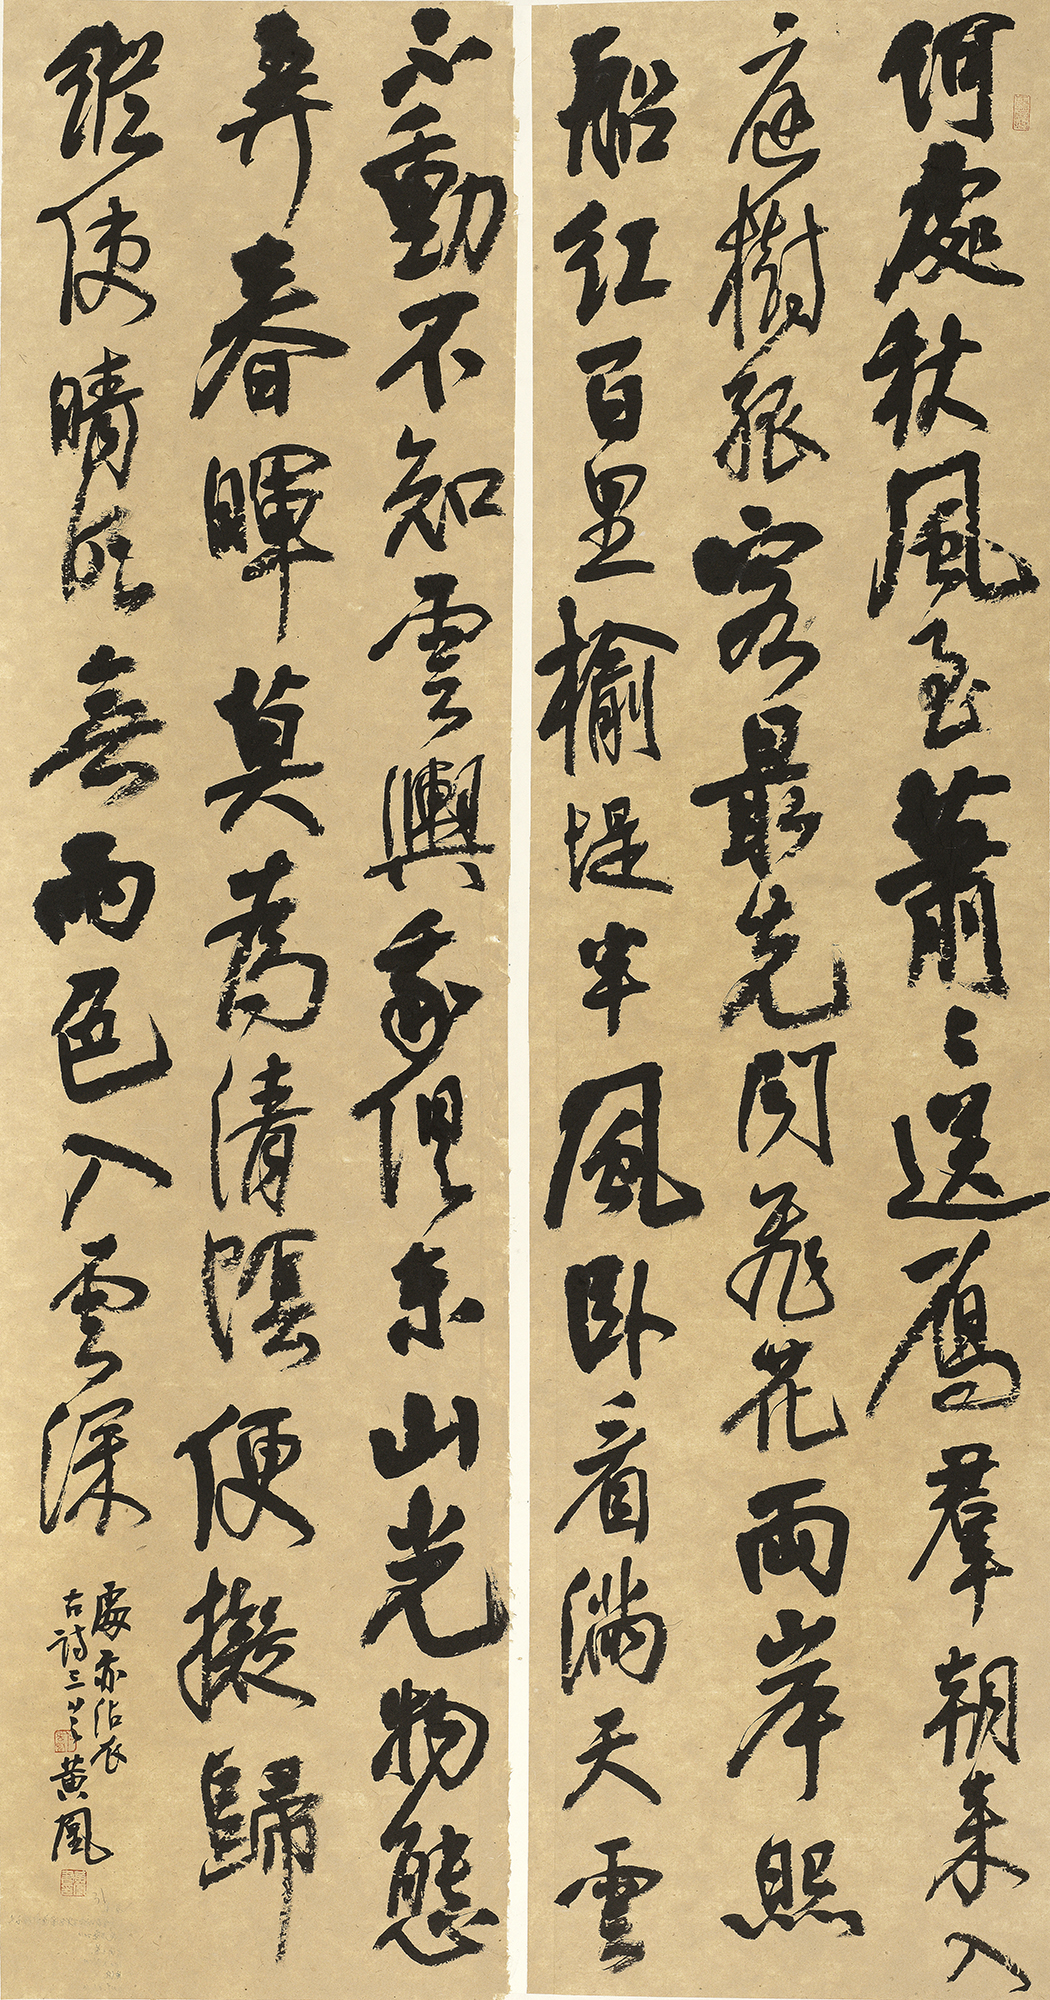 何處秋風至蕭〻送雁群朝来入
庭樹孤客最先聞飛花兩岸照
船紅百里榆堤半風卧看滿天雲
不動不知雲與我俱東山光物態
弄春暉莫為清陰便擬歸
縱使晴明無雨色入雲深
處亦沾衣
古詩三首黃鳳